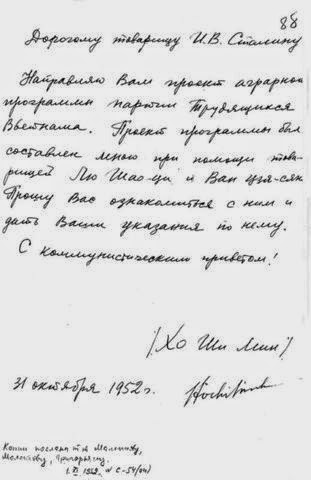 88
Дорогому товарищу И.В. Сталину
Направляю Вам проект аграрной
программы партии Трудящихся
Вьетнама. Проект программы был
составлен мною при помощи това-
рищей Лю Шао-ци и Ван Цзя-сян.
Прошу Вас ознакомиться с ним и
дать Ваши указания по нему.
С коммунистическим приветом!
/Хо Ши Мин/
31 октября 1952 г.
Hochiminh
Копии посланы т.т. Маленкову,
Молотову, Григорьяну.